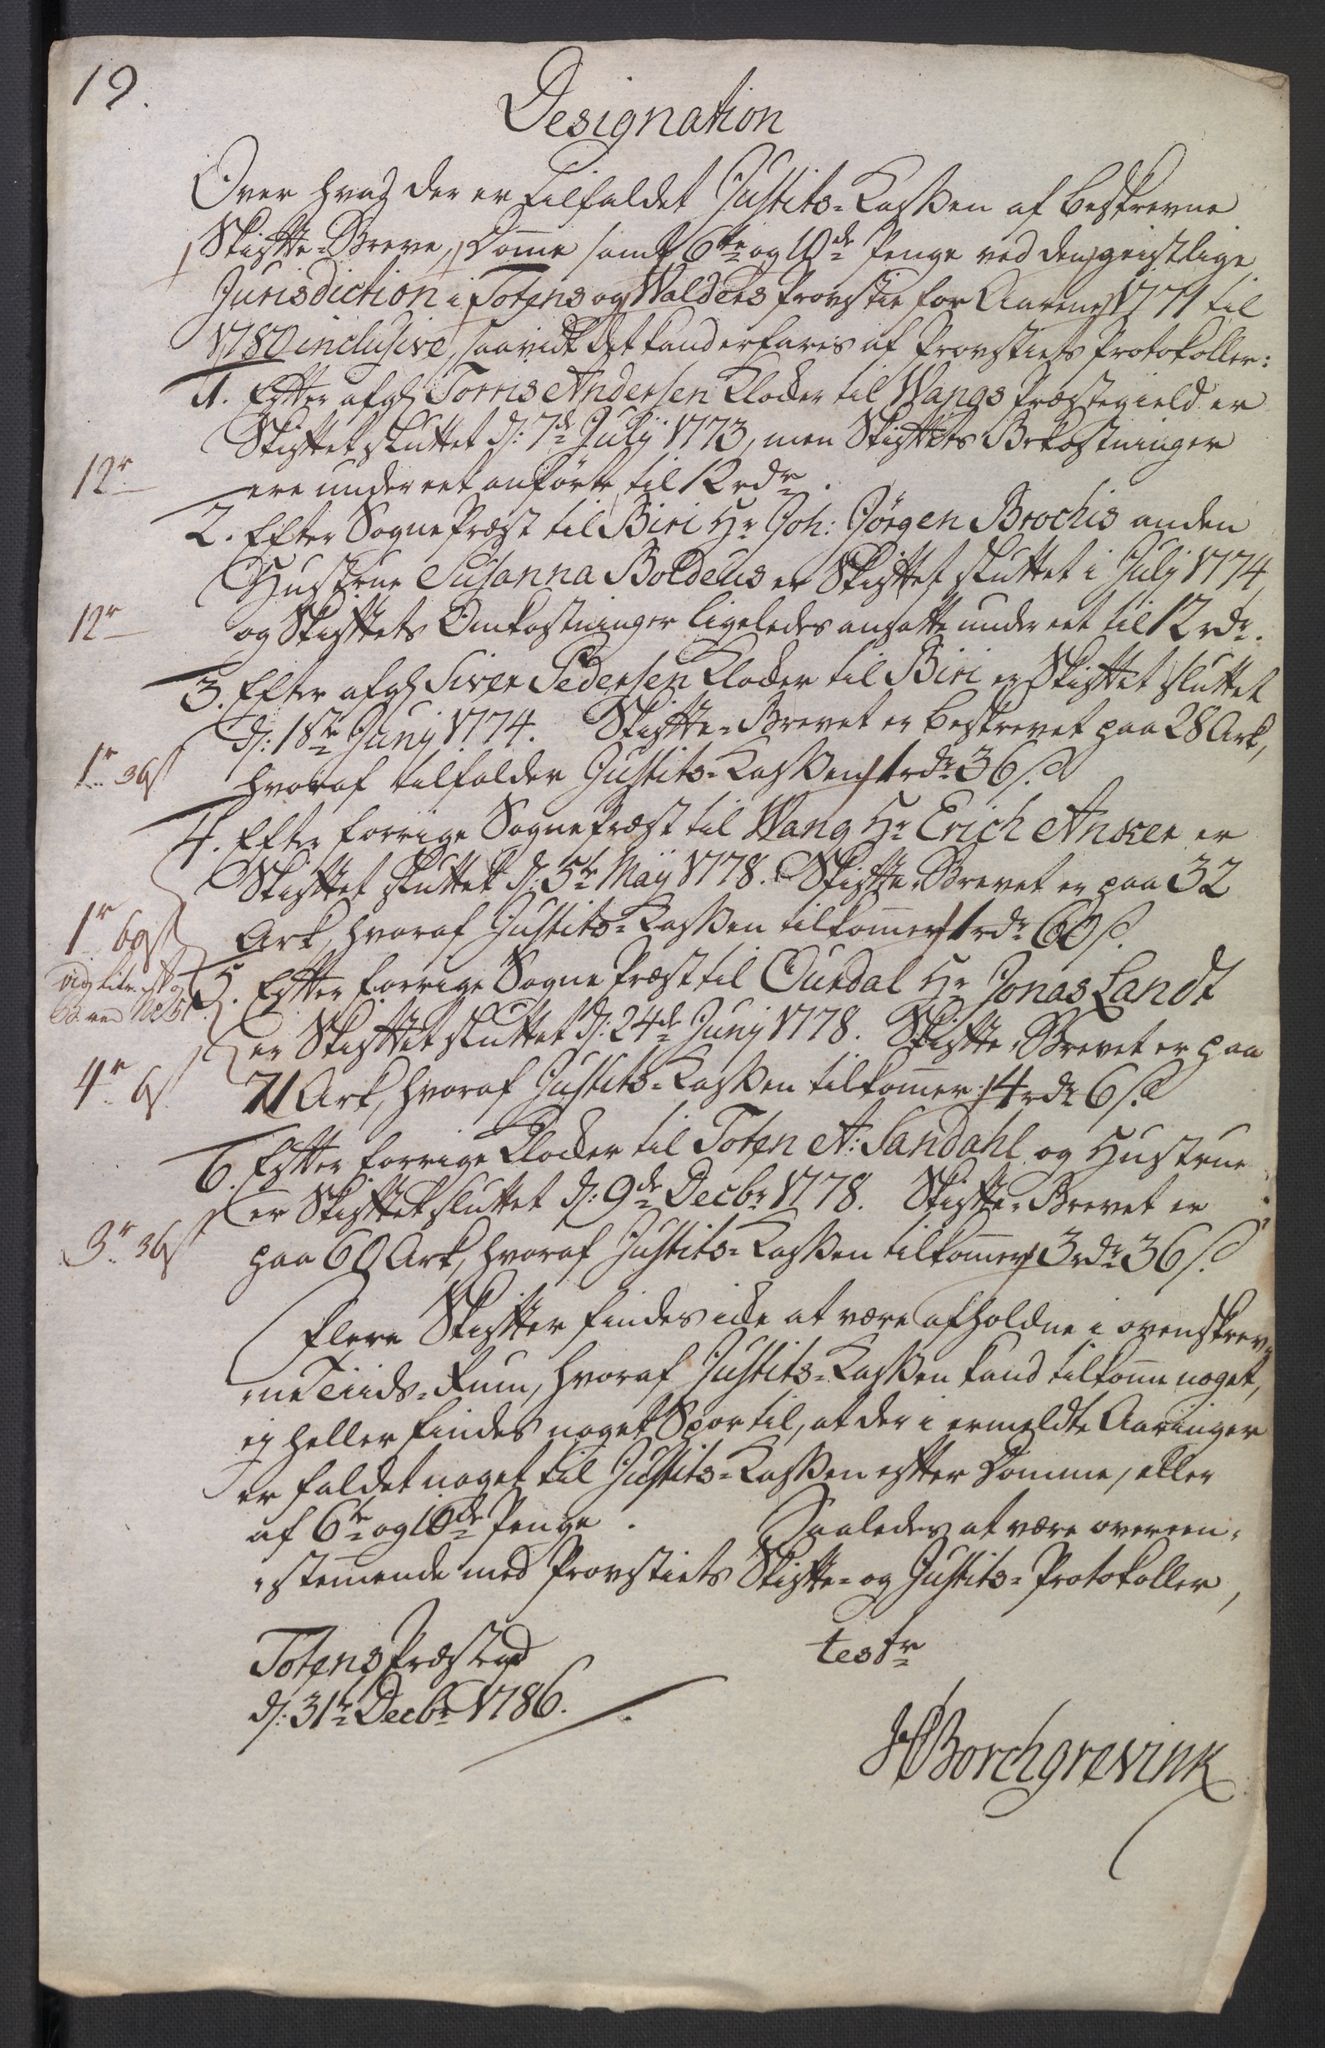 19.
Designation
Over hvad der er tilfaldet Justits-Cassen af beskrevne
Skifte-Breve, Domme samt 6te og 10de Penge ved den geistlige
Jurisdiction i Totens og Walders Provstie for Aarene 1771 til
1780 inclusive, saavidt det kand erfares af Provstiets Protokoller:
1. Efter afgl. Torris Andersen Klocker til Wangs Præstegield er
Skiftet sluttet d: 7de Julij 1773, men Skiftets Bekostninger
12r ere under eet anførte til 12 rdr.
2. Efter SognePræst til Biri Hr Joh: Jörgen Brochis anden
Hustrue Susanna Boldeus er Skiftet sluttet i Julj 1774
12r og Skiftets Omkostninger ligeledes ansatte under eet til 12 rdr.
3. Efter afgl. Siver Pedersen Klocker til Biri er Skiftet sluttet
d: 18de Junj 1774. Skifte-Brevet er beskrevet paa 28 Ark,
1r 36s hvoraf tilfalder Justits-Cassen 1 rdr 36 s.
4. Efter forrige SognePræst til Wang Hr Erich Ancher er
Skiftet sluttet d: 5te Maij 1778. Skifte-Brevet er paa 32
1r 60s Ark, hvoraf Justits-Cassen tilkommer 1 rdr 60 s.
5. Efter forrige Sogne Præst til Ourdal Hr Jonas Landt
er Skiftet sluttet d: 24de Junj 1778. Skifte-Brevet er paa
4r 6s 71 Ark, hvoraf Justits-Cassen tilkommer 4 rdr 6 s.
6. Efter forrige Klocker til Toten A: Sandahl og Hustrue
er Skiftet sluttet d: 9de Decbr 1778. Skifte-Brevet er
3r 36s paa 60 Ark, hvoraf Justits-Cassen tilkommer 3 rdr 36 s.
Flere Skifter findes icke at være afholdne i ovenskrev-
ne Tiids-Rum, hvoraf Justits-Cassen kand tilkomme noget,
ej heller findes noget Spor til, at der i ermeldte Aaringer
er faldet noget til Justits-Cassen efter Domme, eller
af 6te og 10de Penge. Saaledes at være overeen-
stemmende med Provstiets Skifte- og Justits-Protokoller,
Totens Præstegd testr
d: 31te Decbr 1786.
HBorchgrevink